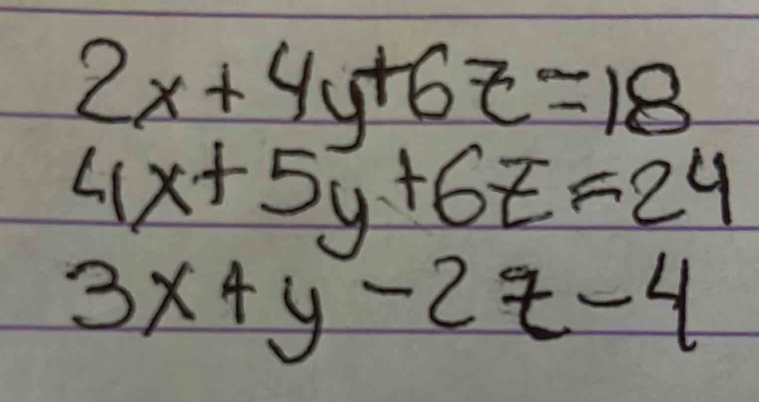 2x+4y+6z=18
4x+5y+6z=24
3x+y-2z-4